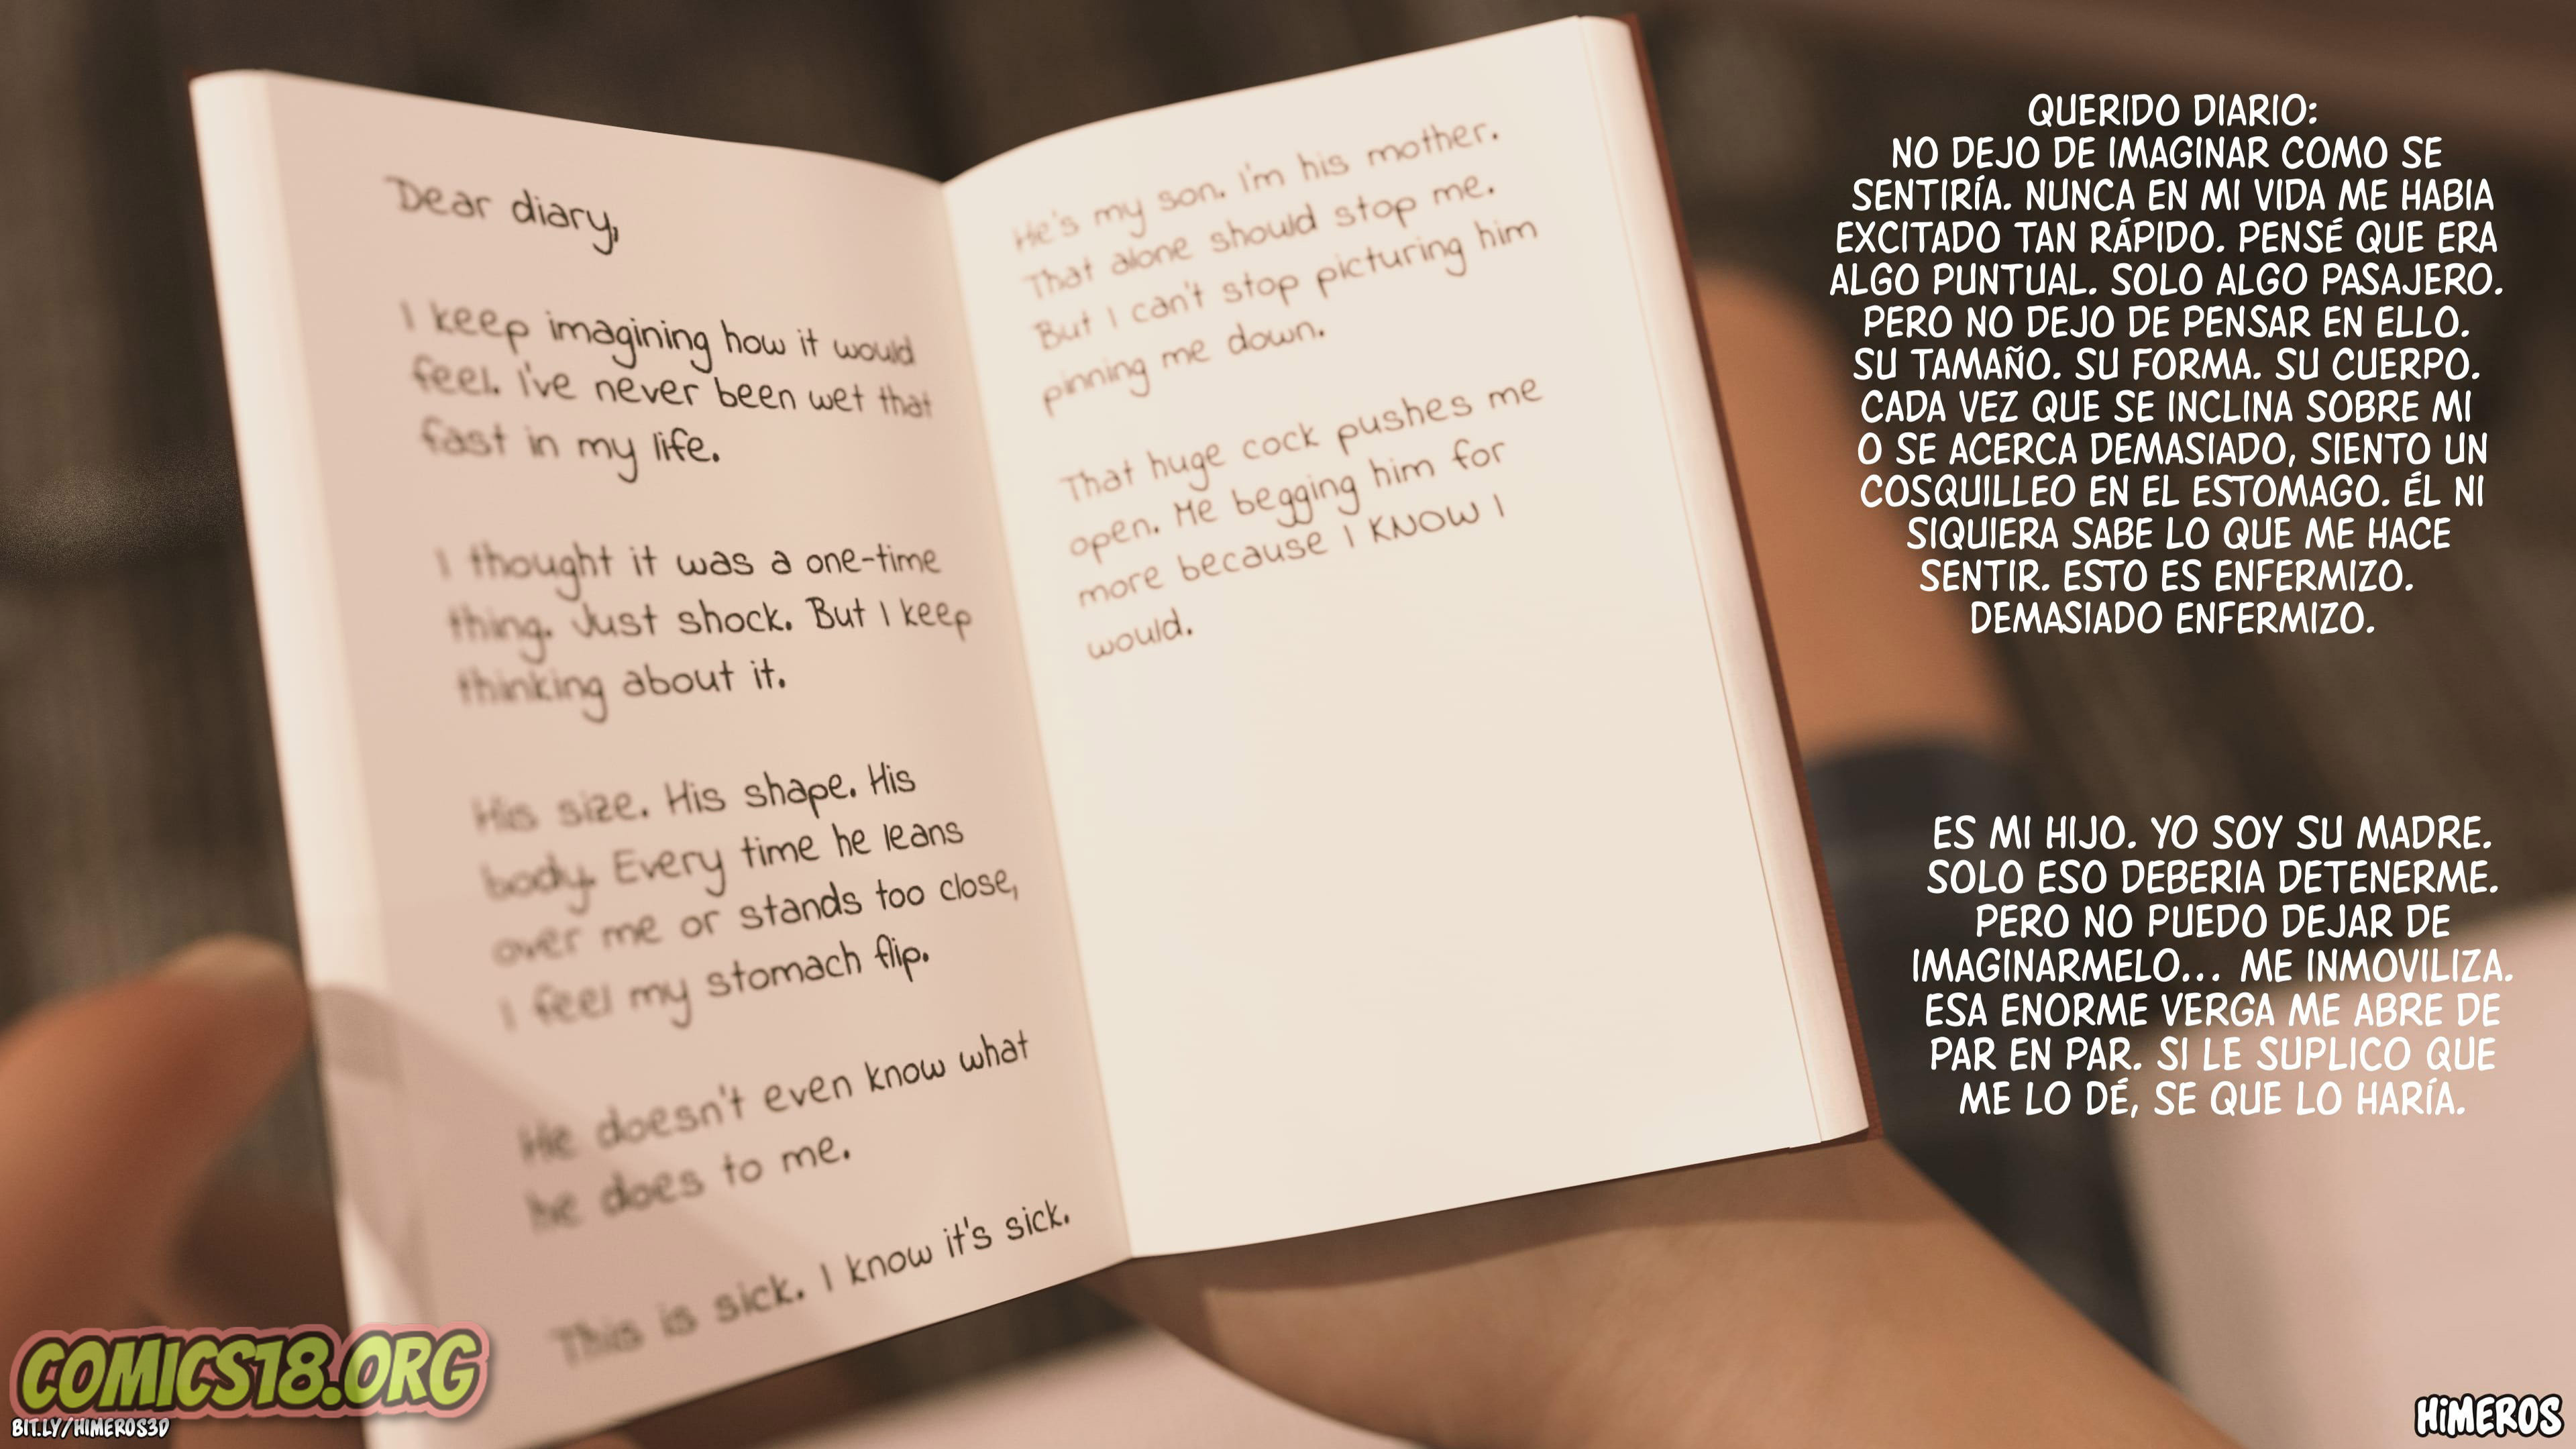 Dear diary,
I keep imagining how it would
feel. I've never been wet that
fast in my life.
I thought it was a one-time
thing. Just shock. But I keep
thinking about it.
His size. His shape. His
body. Every time he leans
over me or stands too close,
I feel my stomach flip.
He doesn't even know what
he does to me.
This is sick. I know it's sick.
He's my son. I'm his mother.
That alone should stop me.
But I can't stop picturing him
pinning me down.
That huge cock pushes me
open. Me begging him for
more because I KNOW I
would.
QUERIDO DIARIO:
NO DEJO DE IMAGINAR COMO SE
SENTIRÍA. NUNCA EN MI VIDA ME HABIA
EXCITADO TAN RÁPIDO. PENSÉ QUE ERA
ALGO PUNTUAL. SOLO ALGO PASAJERO.
PERO NO DEJO DE PENSAR EN ELLO.
SU TAMAÑO. SU FORMA. SU CUERPO.
CADA VEZ QUE SE INCLINA SOBRE MI
O SE ACERCA DEMASIADO, SIENTO UN
COSQUILLEO EN EL ESTOMAGO. ÉL NI
SIQUIERA SABE LO QUE ME HACE
SENTIR. ESTO ES ENFERMIZO.
DEMASIADO ENFERMIZO.
ES MI HIJO. YO SOY SU MADRE.
SOLO ESO DEBERIA DETENERME.
PERO NO PUEDO DEJAR DE
IMAGINARMELO... ME INMOVILIZA.
ESA ENORME VERGA ME ABRE DE
PAR EN PAR. SI LE SUPLICO QUE
ME LO DÉ, SE QUE LO HARÍA.
COMICS18.ORG
BIT.LY/HIMEROS3D
HiMEROS